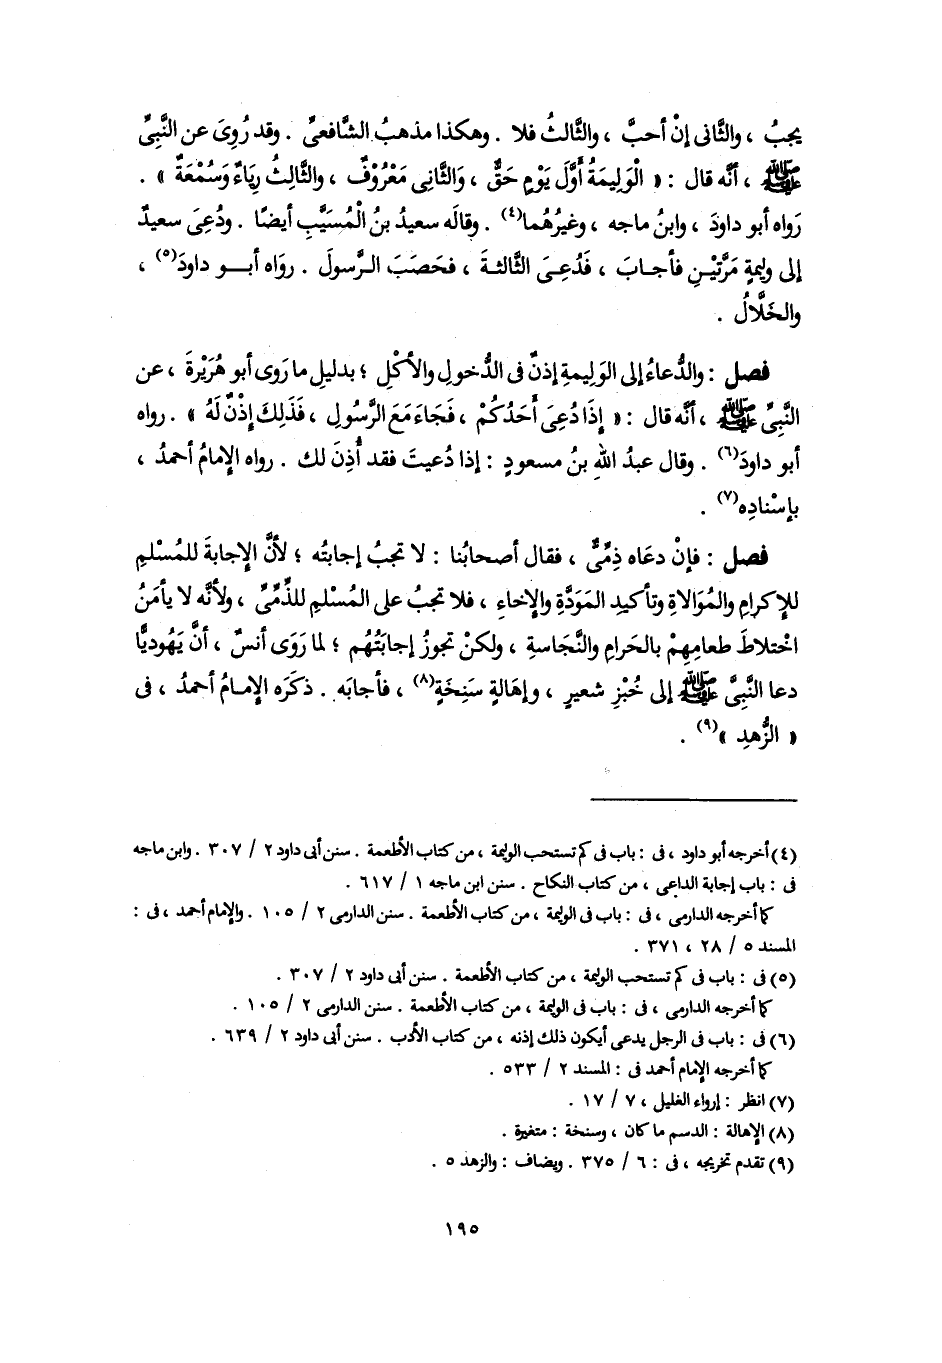 يجبُ ، والثَّانى إنْ أحبَّ ، والثَّالثُ فلا . وهكذا مذهبُ الشَّافعىِّ . وقد رُوِىَ عن النَّبِىِّ
ﷺ ، أنَّه قال : « الْوَلِيمَةُ أَوَّلَ يَوْمٍ حَقٌّ ، وَالثَّانِى مَعْرُوْفٌ ، والثَّالِثُ رِيَاءٌ وَسُمْعَةٌ » .
رَواه أبو داودَ ، وابنُ ماجه ، وغيرُهُما(٤) . وقالَه سعيدُ بنُ الْمُسَيَّبِ أيضًا . ودُعِىَ سعيدٌ
إلى وليمةٍ مَرَّتيْنِ فأجابَ ، فَدُعِىَ الثَّالثةَ ، فحَصَبَ الرَّسولَ . روَاه أبو داودَ(٥) ،
والخَلَّالُ .
فصل : والدُّعاءُ إلى الوَلِيمةِ إذنٌ فى الدُّخولِ والأكْلِ ؛ بدليلِ ما رَوى أبو هُرَيْرةَ ، عن
النَّبِىِّ ﷺ ، أنَّه قال : « إِذَا دُعِىَ أَحَدُكُمْ ، فَجَاءَ مَعَ الرَّسُولِ ، فَذَلِكَ إِذْنٌ لَهُ » . رواه
أبو داودَ(٦) . وقال عبدُ اللهِ بنُ مسعودٍ : إذا دُعيتَ فقد أُذِنَ لك . رواه الإمامُ أحمدُ ،
بإسْنادِه(٧) .
فصل : فإنْ دعَاه ذِمِّىٌّ ، فقال أصحابُنا : لا تجبُ إجابتُه ؛ لأنَّ الإجابةَ للمُسْلمِ
للإكرامِ والمُوَالاةِ وتأكيدِ المَوَدَّةِ والإخاءِ ، فلا تجبُ على المُسْلمِ للذِّمِّىِّ ، ولأنَّه لا يأمَنُ
اخْتلاطَ طعامِهِمْ بالحَرامِ والنَّجَاسةِ ، ولكنْ تجوزُ إجابَتُهُم ؛ لما رَوَى أنسٌ ، أنَّ يَهُودِيًّا
دعا النَّبِىَّ ﷺ إلى خُبْزِ شعيرٍ ، وإهَالةٍ سَنِخَةٍ(٨) ، فأجابَه . ذكَرَه الإمامُ أحمدُ ، فى
« الزُّهدِ »(٩) .
(٤) أخرجه أبو داود ، فى : باب فى كم تستحب الوليمة ، من كتاب الأطعمة . سنن أبى داود ٢ / ٣٠٧ . وابن ماجه
فى : باب إجابة الداعى ، من كتاب النكاح . سنن ابن ماجه ١ / ٦١٧ .
كما أخرجه الدارمى ، فى : باب فى الوليمة ، من كتاب الأطعمة . سنن الدارمى ٢ / ١٠٥ . والإمام أحمد ، فى :
المسند ٥ / ٢٨ ، ٣٧١ .
(٥) فى : باب فى كم تستحب الوليمة ، من كتاب الأطعمة . سنن أبى داود ٢ / ٣٠٧ .
كما أخرجه الدارمى ، فى : باب فى الوليمة ، من كتاب الأطعمة . سنن الدارمى ٢ / ١٠٥ .
(٦) فى : باب فى الرجل يدعى أيكون ذلك إذنه ، من كتاب الأدب . سنن أبى داود ٢ / ٦٣٩ .
كما أخرجه الإمام أحمد فى : المسند ٢ / ٥٣٣ .
(٧) انظر : إرواء الغليل ، ٧ / ١٧ .
(٨) الإهالة : الدسم ما كان ، وسنخة : متغيرة .
(٩) تقدم تخريجه ، فى : ٦ / ٣٧٥ . ويضاف : والزهد ٥ .
١٩٥